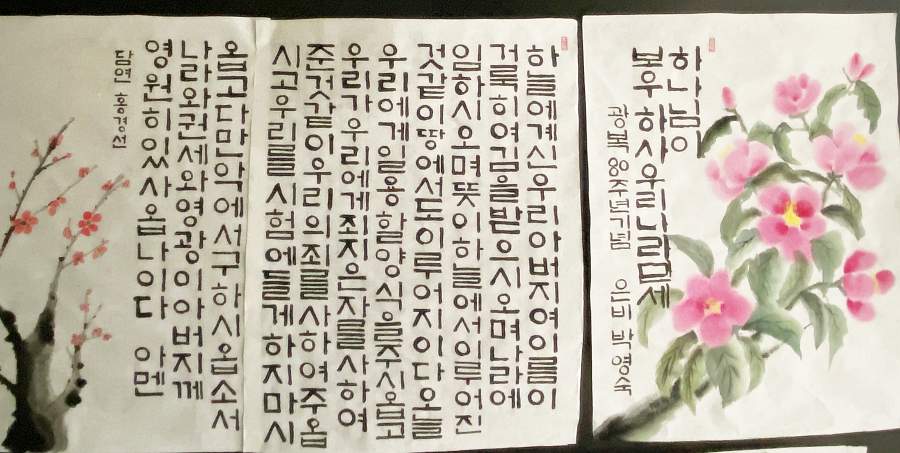 하나님이
보우하사우리나라만세
광복 80주년기념 은비 박영숙
하늘에계신우리아버지여이름이
거룩히여김을받으시오며나라에
임하시오며뜻이하늘에서이루어진
것같이땅에서도이루어지이다오늘
우리에게일용할양식을주시옵고
우리가우리에게죄지은자를사하여
준것같이우리의죄를사하여주옵
시고우리를시험에들게하지마시
옵고다만악에서구하시옵소서
나라와권세와영광이아버지께
영원히있사옵나이다 아멘
담연 홍경선